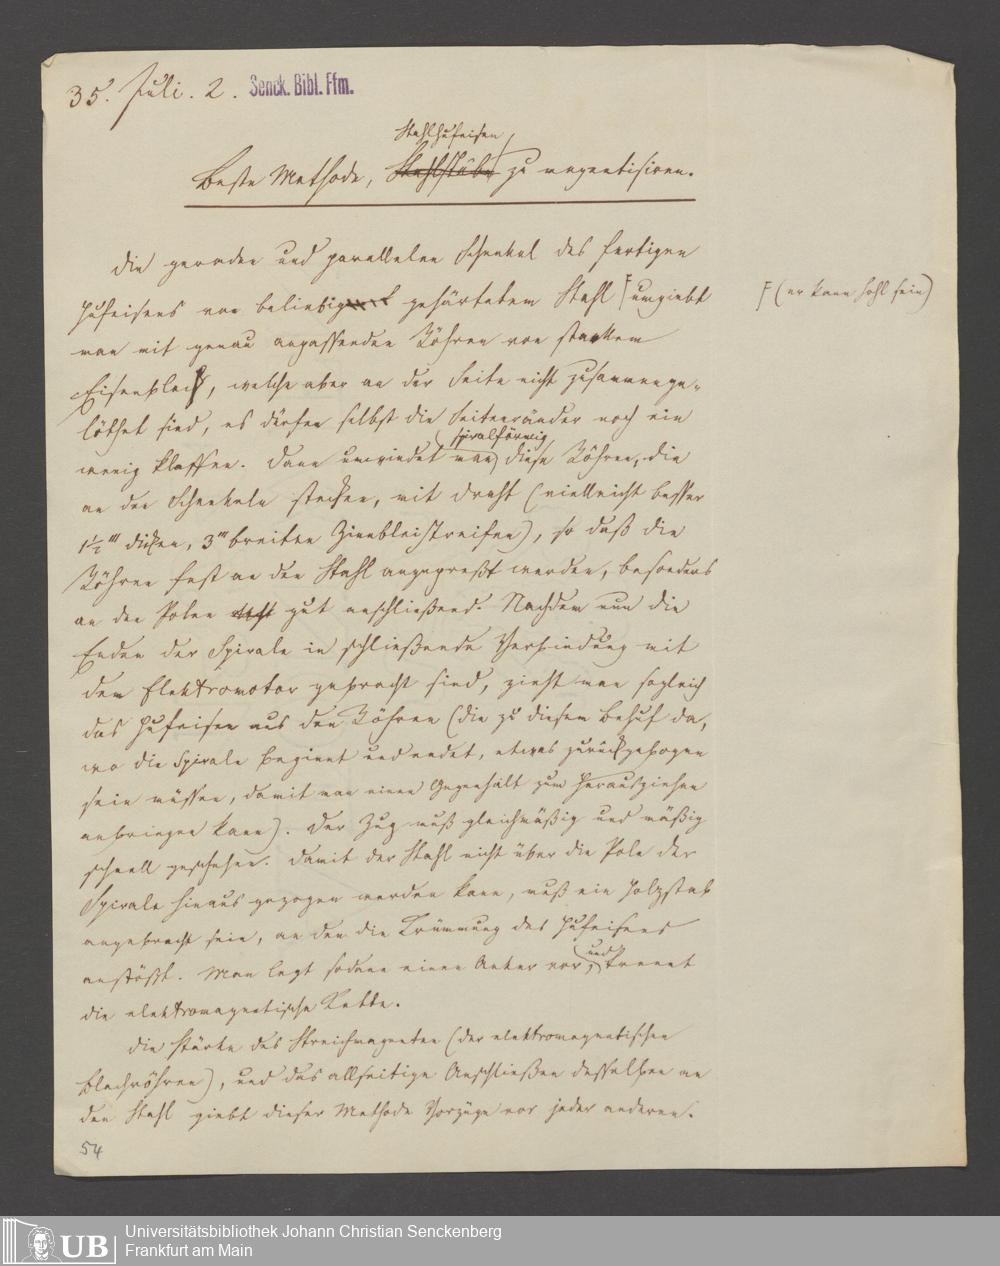 35. Juli. 2. Senck. Bibl. Ffm.
Stahlhufeisen
Beste Methode, Stahlstäbe zu magnetisiren.
Die geraden und parallelen Schenkel des fertigen
Hufeisens von beliebig gehärtetem Stahl F umgiebt
F (er kann hohl sein)
man mit genau anpassenden Röhren von starkem
Eisenblech, welche aber an der Seite nicht zusammenge-
löthet sind, es dürfen selbst die Seitenränder noch ein
wenig klaffen. Dann umwindet man spiralförmig diese Röhren, die
an den Schenkeln stecken, mit Draht (vielleicht besser
1½''' dicken, 3''' breiten Zinnbleistreifen), so daß die
Röhren fest an den Stahl angepreßt werden, besonders
an den Polen gut anschließend. Nachdem nun die
Enden der Spirale in schließende Verbindung mit
dem Elektromotor gebracht sind, zieht man sogleich
das Hufeisen aus den Röhren (die zu diesem Behuf da,
wo die Spirale beginnt und endet, etwas zurückgebogen
sein müssen, damit man einen Gegenhalt zum Herausziehen
anbringen kann). Der Zug muß gleichmäßig und mäßig
schnell geschehen. Damit der Stahl nicht über die Pole der
Spirale hinaus gezogen werden kann, muß ein Holzstab
angebracht sein, an den die Krümmung des Hufeisens
anstößt. Man legt sodann einen Anker vor, und trennt
die elektromagnetische Kette.
Die Stärke des Streichmagneten (der elektromagnetischen
Blechröhren), und das allseitige Anschließen desselben an
den Stahl giebt dieser Methode Vorzüge vor jeder anderen.
54
UB Universitätsbibliothek Johann Christian Senckenberg
Frankfurt am Main